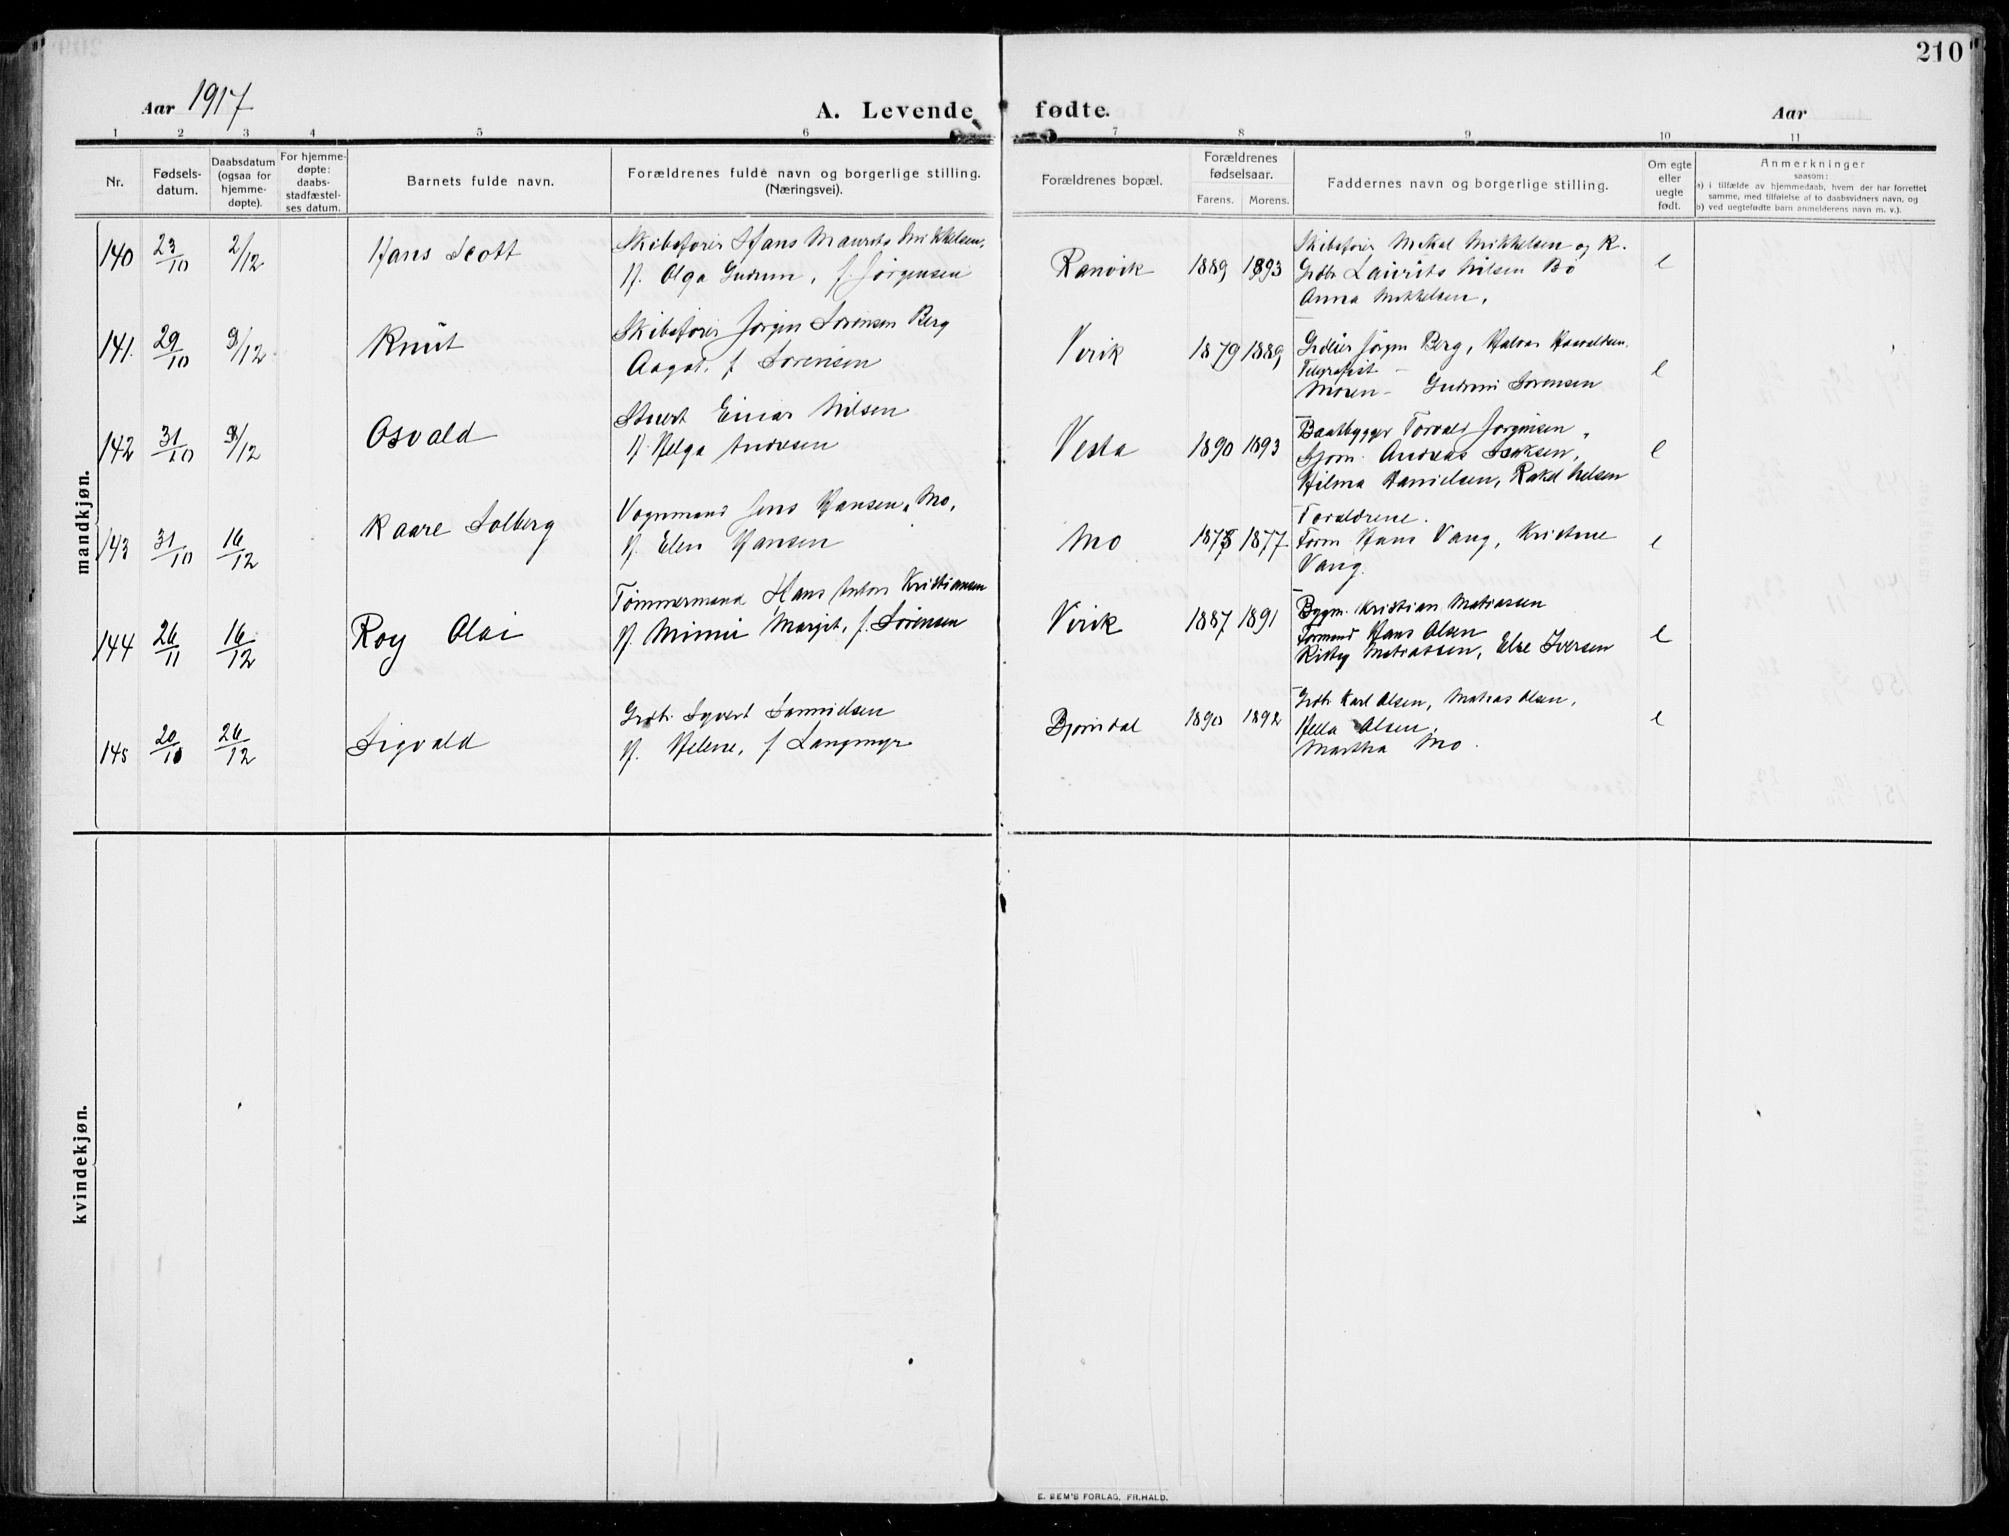 210
Aar 1917
A. Levende fødte.
Aar
1 2 3 4 5 6 7 8 9 10 11
Nr.
Fødsels-
datum.
Daabsdatum
(ogsaa for
hjemme-
døpte).
For hjemme-
døpte:
daabs-
stadfæstel-
ses datum.
Barnets fulde navn.
Forældrenes fulde navn og borgerlige stilling.
(Næringsvei).
Forældrenes bopæl.
Forældrenes
fødselsaar.
Farens. Morens.
Faddernes navn og borgerlige stilling.
Om egte
eller
uegte
født.
Anmerkninger
saasom:
a) i tilfælde av hjemmedaab, hvem der har forrettet
samme, med tilføielse af to daabsvidners navn, og
b) ved uegtefødte barn anmelderens navn m. v.).
mandkjøn.
140 23/10 2/12 Hans Scott
Skibsfører Hans Maurits Mikkelsen,
H. Olga Gudrun, f. Jørgensen
Ranvik 1889 1893
Skibsfører Mikal Mikkelsen og K.
Grdbr Laurits Nilsen Bö
Anna Mikkelsen,
e
141. 29/10 9/12 Knut
Skibsfører Jørgen Sørensen Berg
Aagot, f Sørensen
Virik 1879 1889
Jørgen Berg, Halvor
Telegrafist
Moren - Gudrun Sørensen
e
142 31/10 9/12 Osvald
Stuert Einar Nilsen
H. Helga Andresen
Vesta 1890 1893
Baatbygger Torvald Jørgensen,
Sjøm. Andreas Isaksen,
Hilma Danielsen, Rakel Nilsen
e
143 31/10 16/12 Kaare Solberg
Vognmand Jens Hansen, Mo,
H. Elen Hansen
Mo 1878 1877
Forældrene.
Form Hans Vang, Kristine
Vang.
e
144 26/11 16/12 Roy Olai
Tömmermand Hans Anton Kristiansen
H. Minni Margit, f. Sörensen
Virik 1887 1891
Bygm. Kristian Matiassen
Formand Hans Olsen
Matiassen, Else Iversen
e
145 20/10 26/12 Sigvald
Grdbr. Syvert Samuelsen
H. Helene, f Langmyr
Bjørndal 1890 1892
Grdbr Karl Olsen, Matias Olsen,
Hella Olsen,
Martha Mo.
e
kvindekjøn.
E. SEM'S FORLAG, FR.HALD.